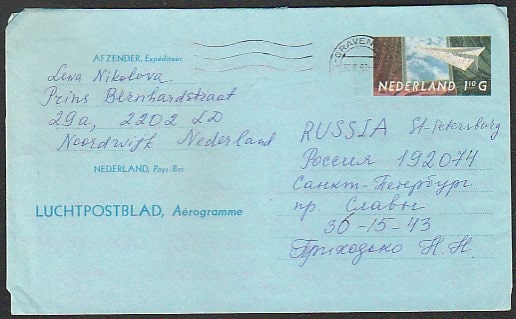 AFZENDER, Expéditeur
Lena Nikolova
Prins Bernhardstraat
29a, 2202 LD
Noordwijk Nederland
NEDERLAND, Pays-Bas
LUCHTPOSTBLAD, Aérogramme
GRAVEN
NEDERLAND 110 G
RUSSIA St-Petersburg
Россия 192074
Санкт-Петербург
пр Славы
30-15-43
Приходько Н. Н.